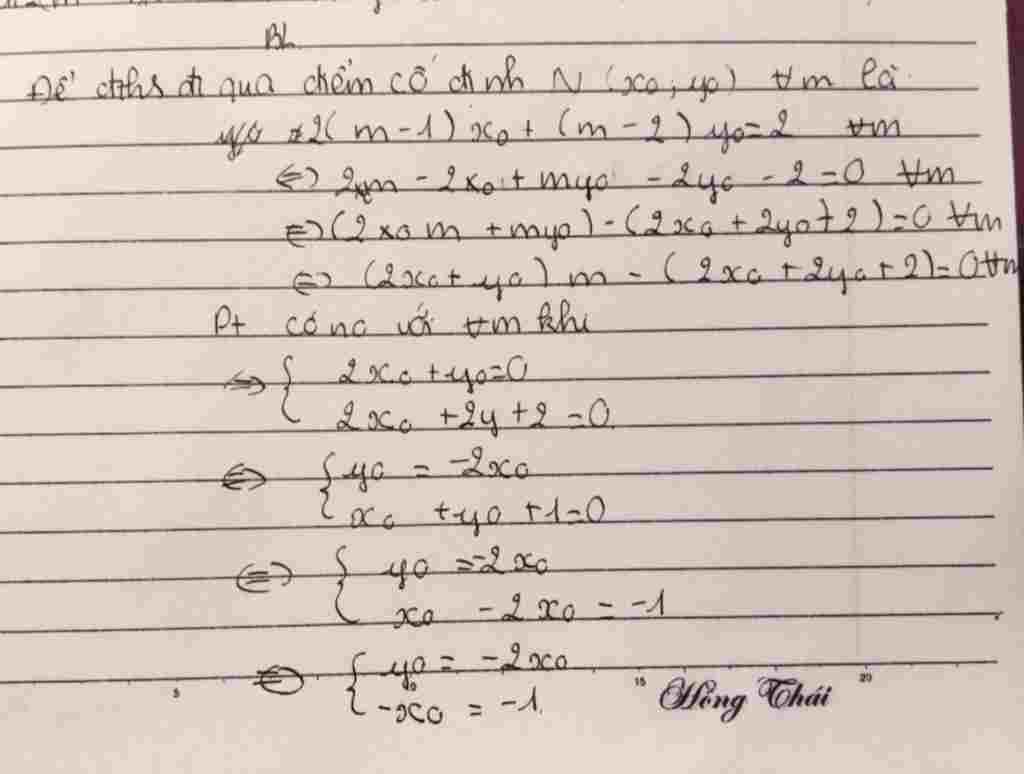 BL
Để đths đi qua điểm cố định N (x₀; y₀) ∀m là
2(m-1)x₀ + (m-2)y₀=2 ∀m
⇔ 2x₀m - 2x₀ + my₀ - 2y₀ - 2 =0 ∀m
⇔ (2x₀m + my₀) - (2x₀ + 2y₀ + 2)=0 ∀m
⇔ (2x₀+y₀)m - (2x₀+2y₀+2)=0 ∀m
Pt có no với ∀m khi
⇔ { 2x₀ + y₀=0
2x₀ + 2y + 2 =0
⇔ { y₀ = -2x₀
x₀ + y₀ + 1=0
⇔ { y₀ = -2x₀
x₀ - 2x₀ = -1
⇔ { y₀ = -2x₀
-x₀ = -1.
5 15 20
Hồng Thái